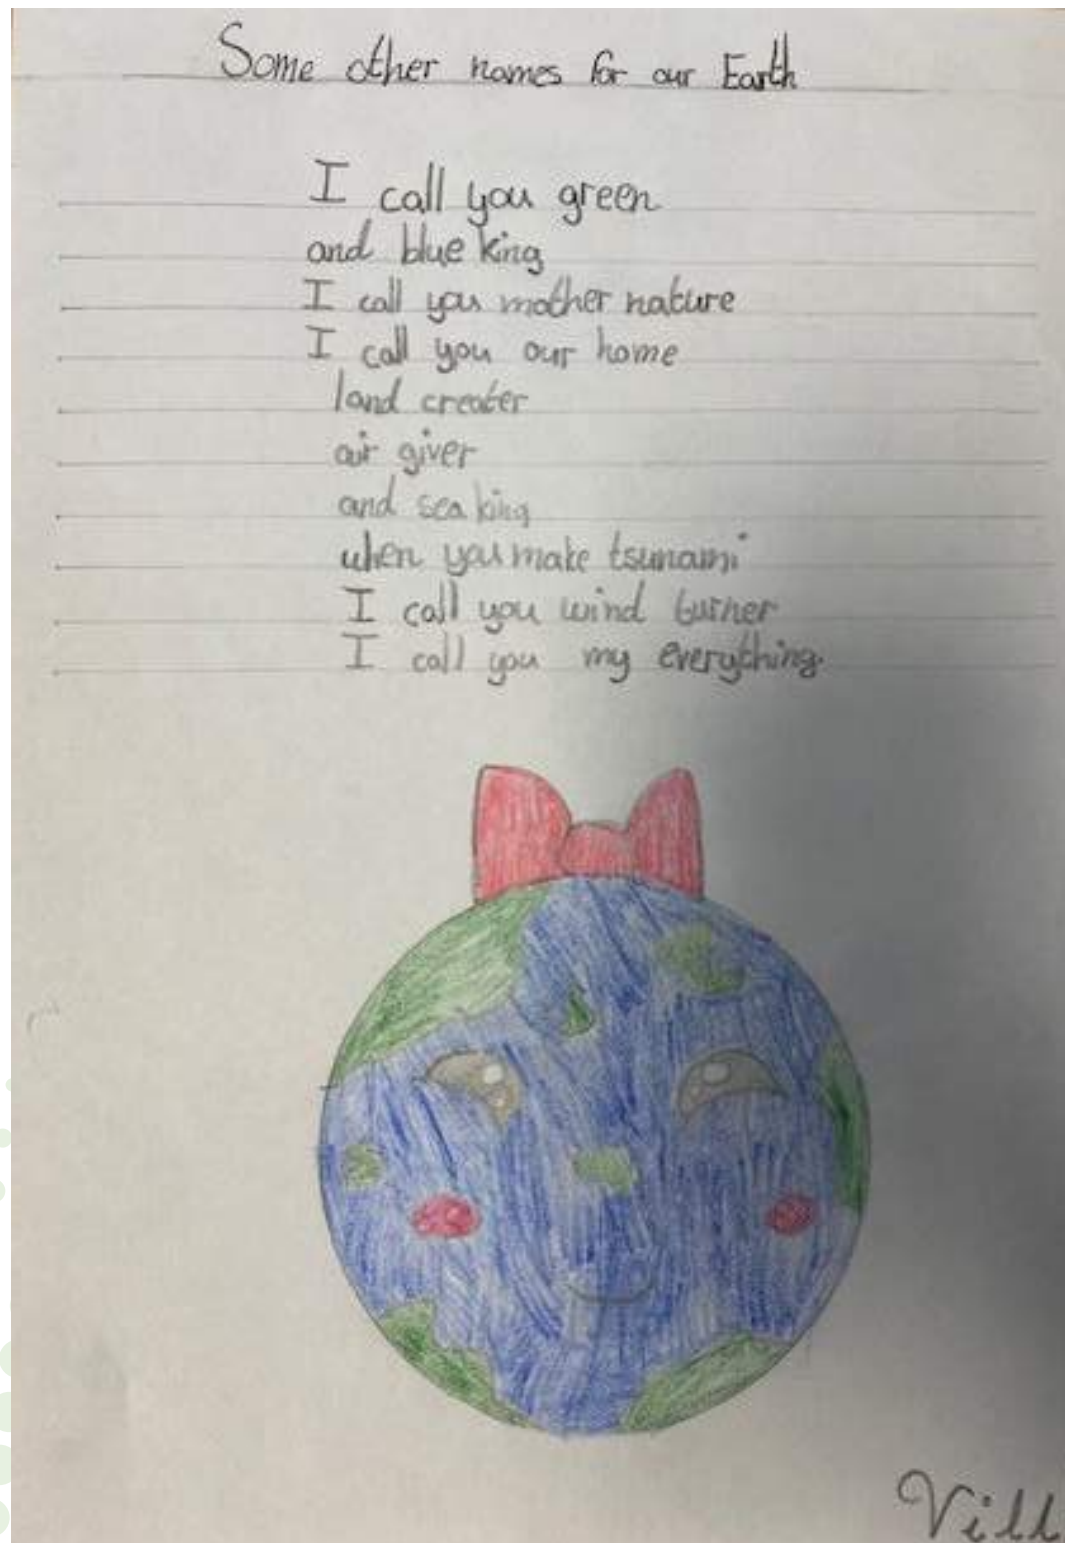 Some other names for our Earth
I call you green
and blue king
I call you mother nature
I call you our home
land creater
air giver
and sea king
when you make tsunami
I call you wind turner
I call you my everything.
Vill